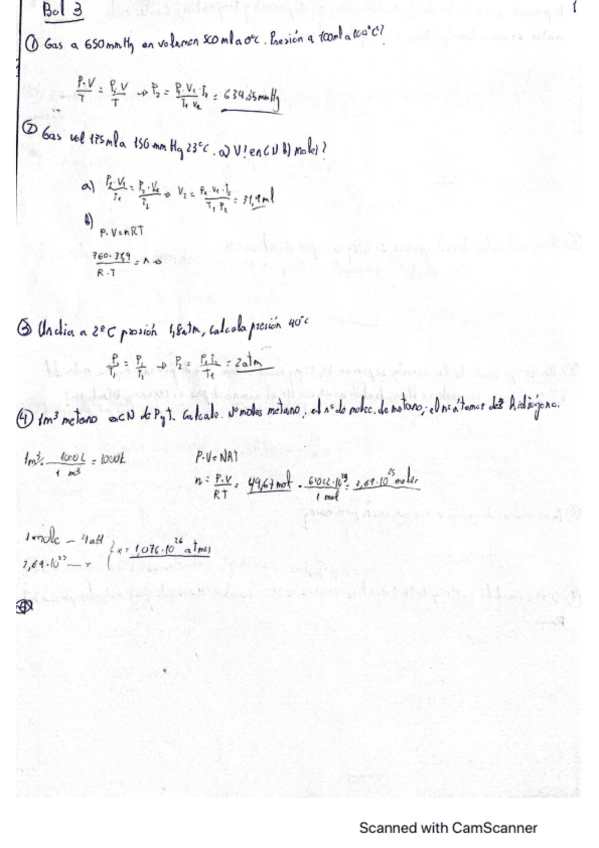 Bol 3
1
① Gas a 650mmHg en volumen 500 ml a 0ºC. Presión a 700ml a 100ºC?
P·V/T = P₂V/T → P₂ = P₁·V₁·T₂/T₁ V₂ = 634,35mmHg
② Gas vol 175ml a 150mmHg 23ºC. a) V? en CN b) moles?
a) P₁·V₁/T₁ = P₂·V₂/T₂ → V₂ = P₁ V₁ T₂/T₁ P₂ = 31,9ml
b) P·V=nRT
/R·T = n →
③ Un dia a 2ºC presión 1,8atm, calcula presión 40ºC
P₁/T₁ = P₂/T₂ → P₂ = P₁T₂/T₁ = 2atm
④ 1m³ metano en CN de P y T. Calcula. Nº moles metano; el nº de molec. de metano; el nº átomos de hidrógeno.
1m³ · 1000L/1 m³ = 1000L
n = P·V/RT = 44,67mol · /1 mol = 2,69·10²⁵ molec
1 molec — 4 at H
2,69·10²⁵ — x } x = 1,076·10²⁶ atmos
Scanned with CamScanner